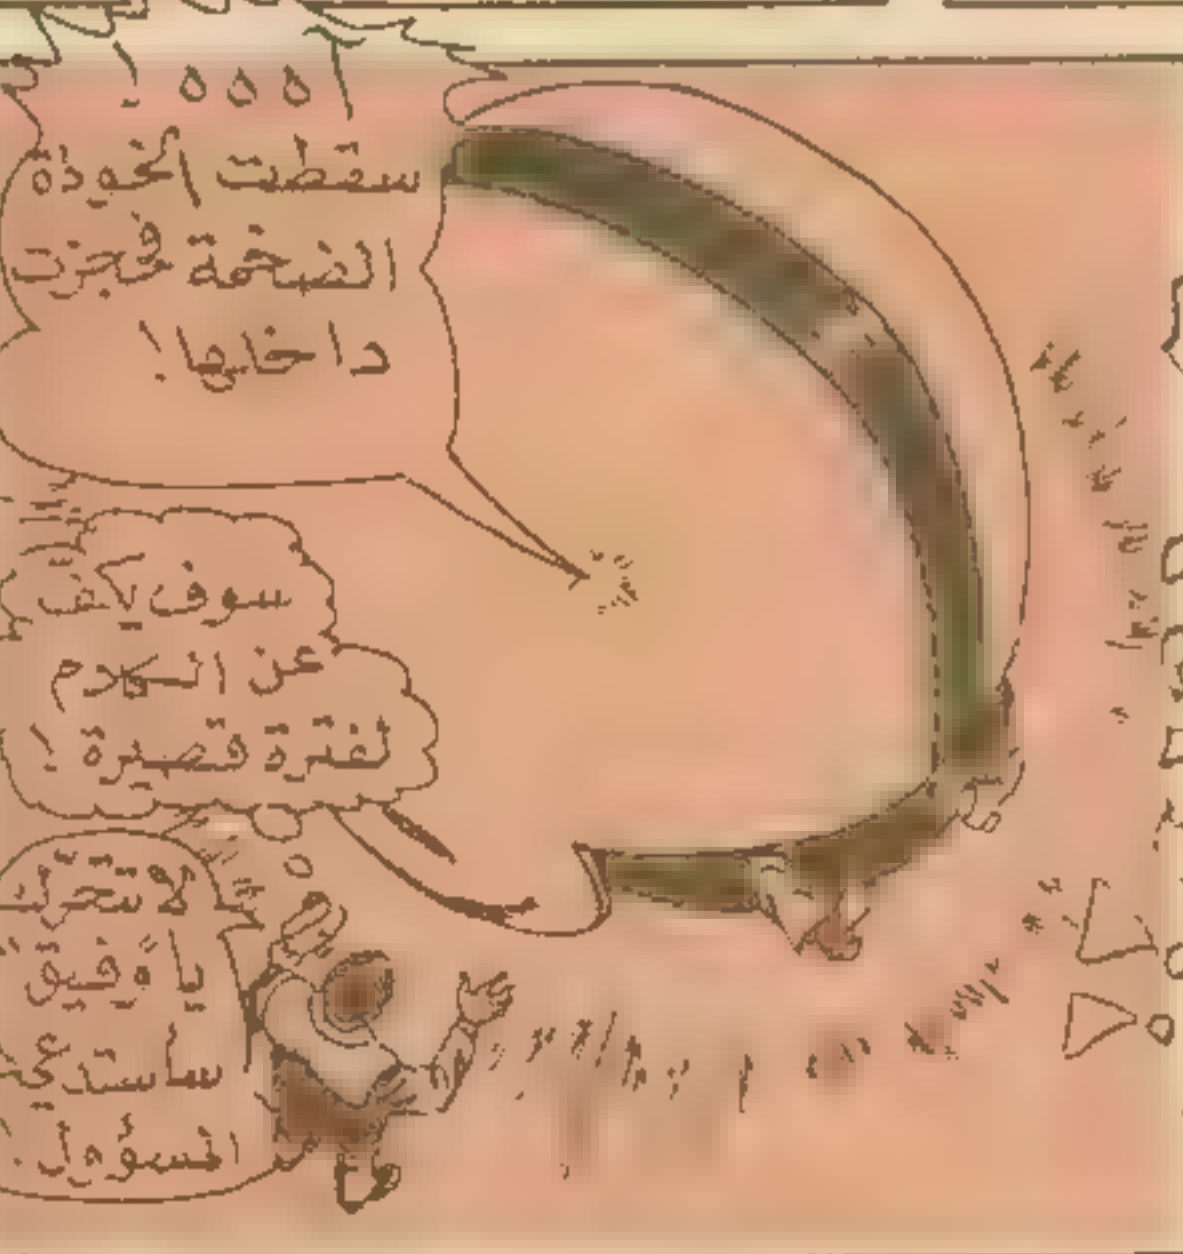 آ ٥٥٥ !
سقطت الخوذة
الضخمة فحجزت
داخلها!
سوف يكف
عن الكلام
لفترة قصيرة !
لا تتحرك
يا توفيق
سأستدعي
المسؤول.